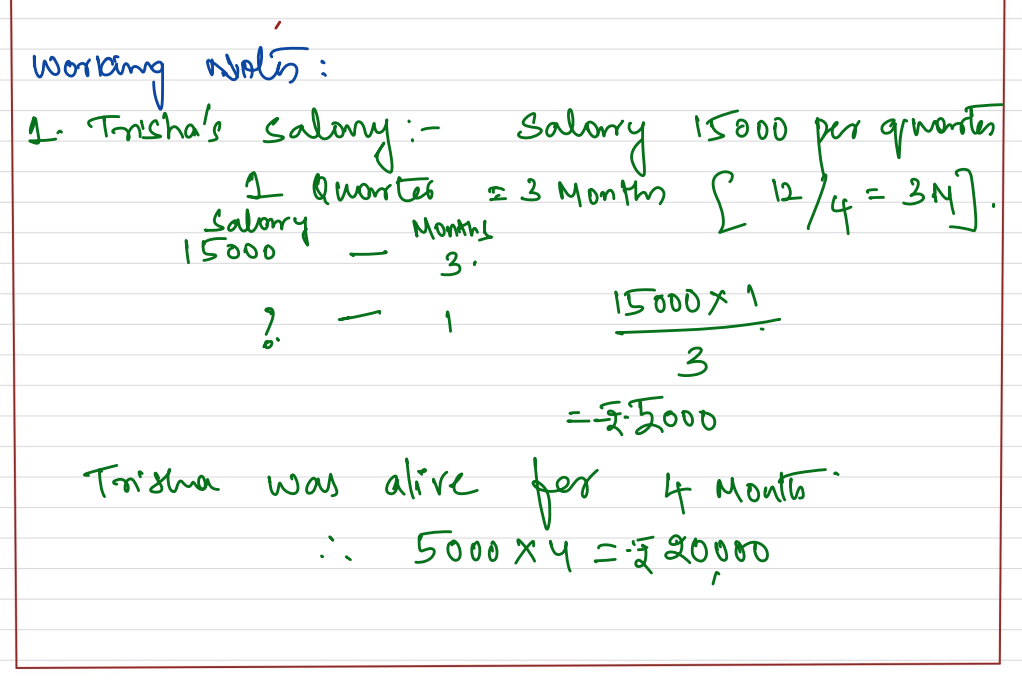 Working Notes:
1. Trisha's Salary :- Salary 15000 per quarter
1 Quarter = 3 Months [12/4 = 3M].
Salary Months
15000 — 3.
? — 1 15000 x 1
3
= ₹ 5000
Trisha was alive for 4 Months
∴ 5000 x 4 = ₹ 20,000